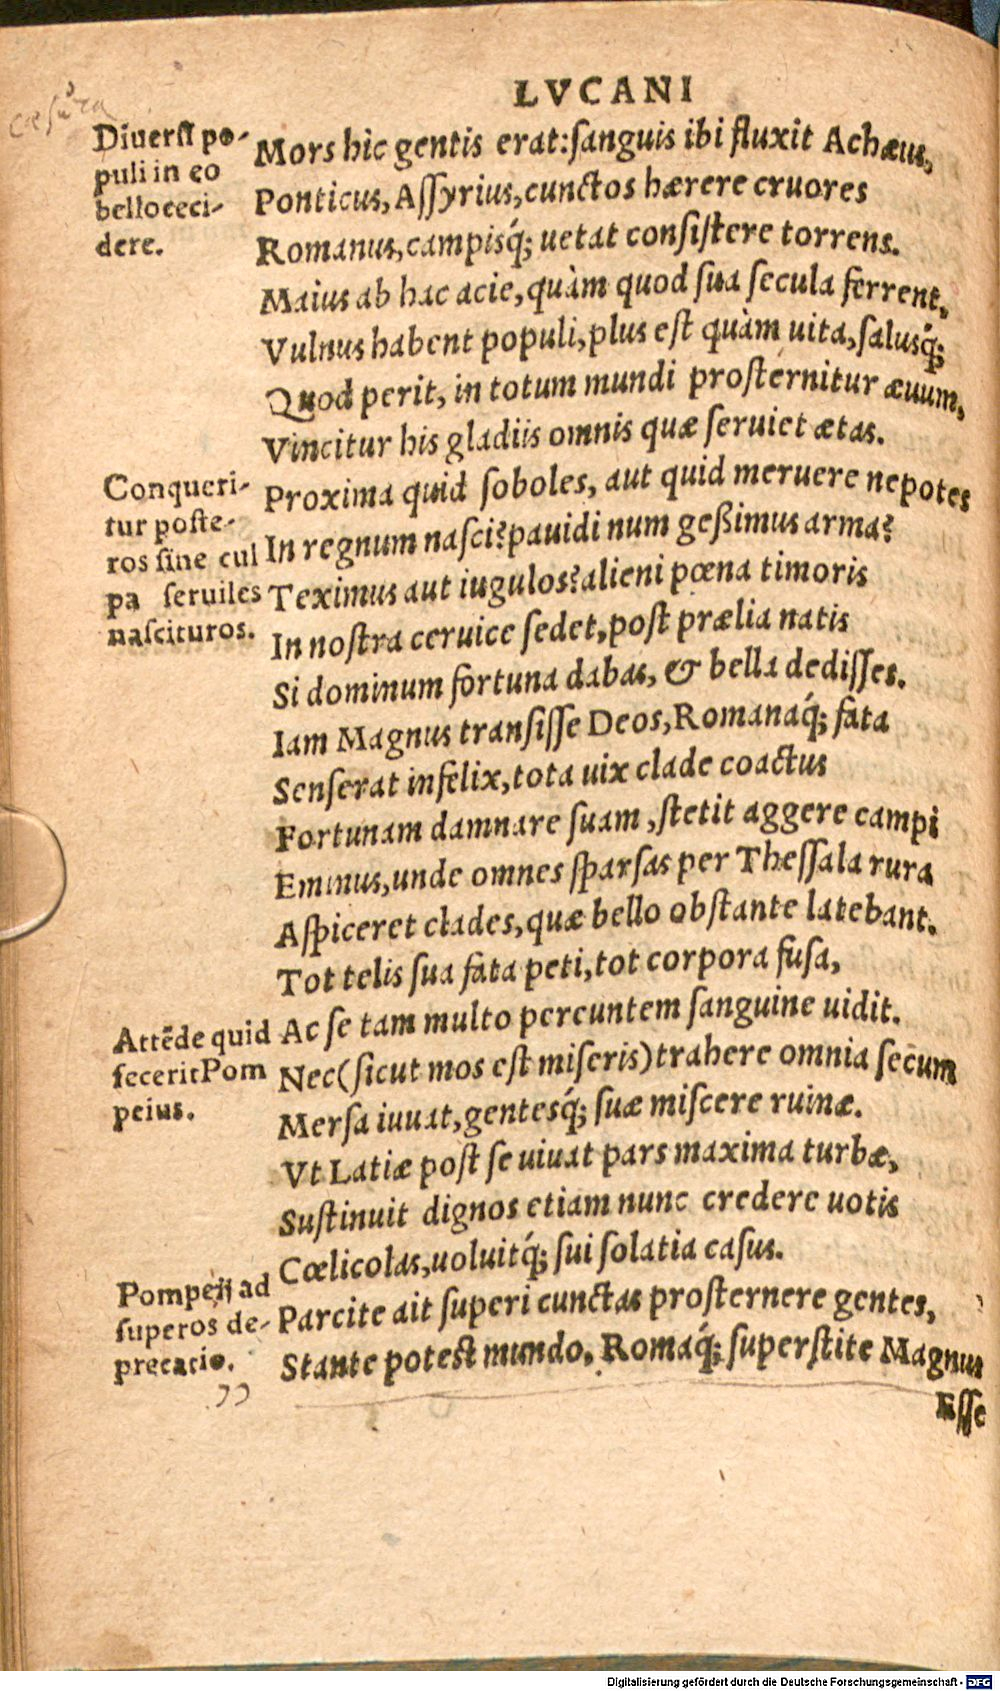 LVCANI
Diuersi po-
puli in eo
bello ceci-
dere.
Mors hic gentis erat: sanguis ibi fluxit Achæus,
Ponticus, Assyrius, cunctos hærere cruores
Romanus, campisq́; uetat consistere torrens.
Maius ab hac acie, quàm quod sua secula ferrent,
Vulnus habent populi, plus est quàm uita, salusq́;
Quod perit, in totum mundi prosternitur æuum,
Vincitur his gladiis omnis quæ seruiet ætas.
Conqueri-
tur poste-
ros sine cul
pa seruiles
nascituros.
Proxima quid soboles, aut quid meruere nepotes
In regnum nasci? pauidi num geßimus arma?
Teximus aut iugulos? alieni pœna timoris
In nostra ceruice sedet, post prælia natis
Si dominum fortuna dabas, & bella dedisses.
Iam Magnus transisse Deos, Romanaq́; fata
Senserat infelix, tota uix clade coactus
Fortunam damnare suam, stetit aggere campi
Eminus, unde omnes sparsas per Thessala rura
Aspiceret clades, quæ bello obstante latebant.
Tot telis sua fata peti, tot corpora fusa,
Ac se tam multo pereuntem sanguine uidit.
Attēde quid
fecerit Pom
peius.
Nec (sicut mos est miseris) trahere omnia secum
Mersa iuuat, gentesq́; suæ miscere ruinæ.
Vt Latiæ post se uiuat pars maxima turbæ,
Sustinuit dignos etiam nunc credere uotis
Cœlicolas, uoluitq́; sui solatia casus.
Pompeij ad
superos de-
precatio.
Parcite ait superi cunctas prosternere gentes,
Stante potest mundo, Romaq́; superstite Magnus
Esse
Digitalisierung gefördert durch die Deutsche Forschungsgemeinschaft - DFG